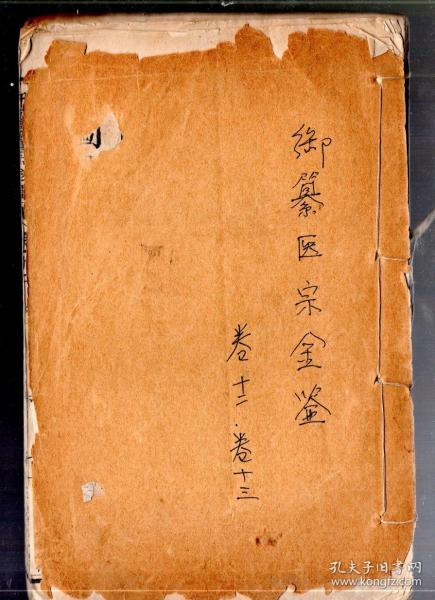 御纂医宗金鉴
卷十二·卷十三
孔夫子旧书网
www.kongfz.com